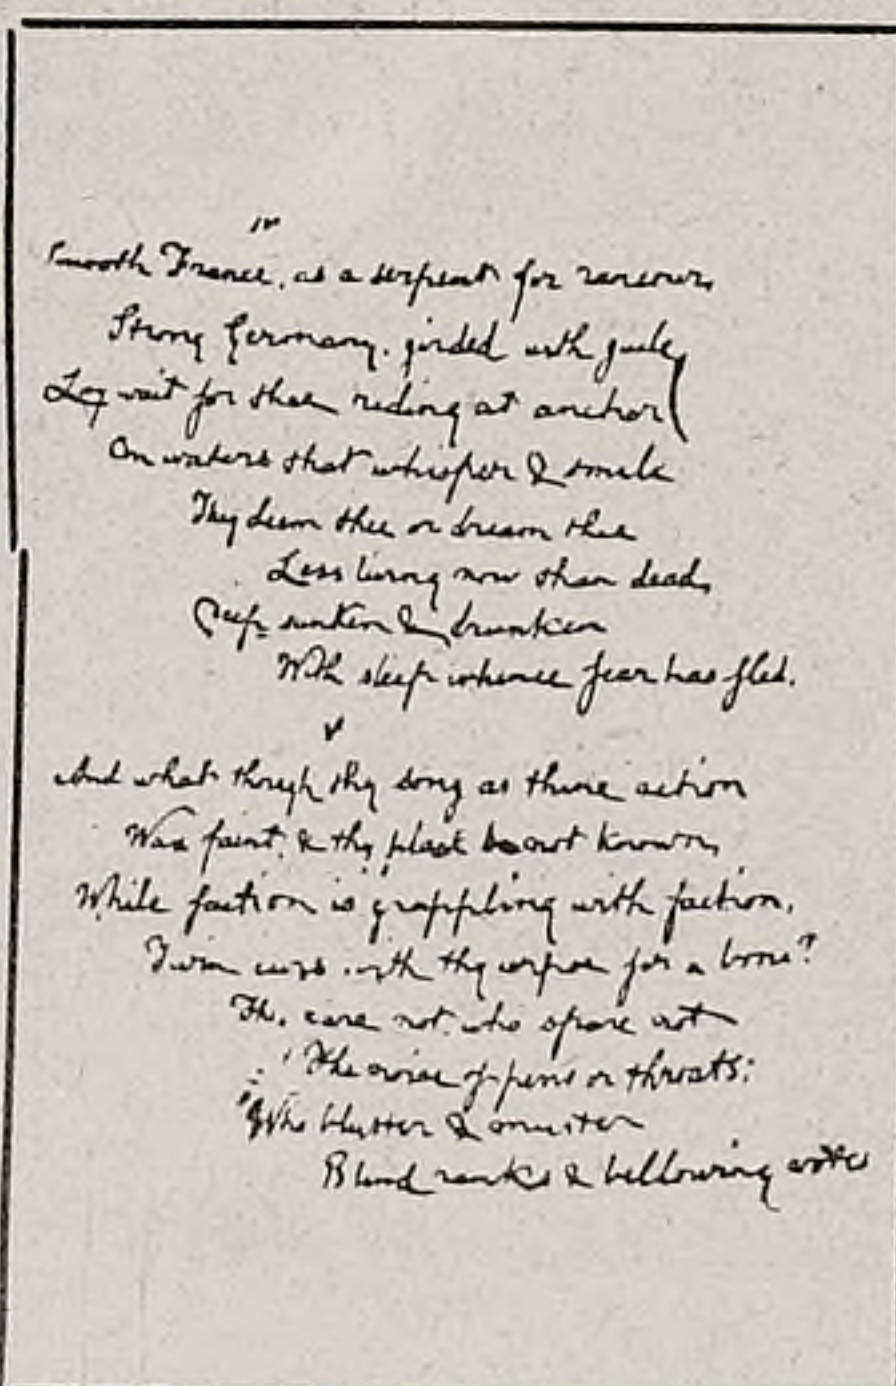 IV
Smooth France, as a serpent for rancour,
Strong Germany, girded with guile,
Lay wait for thee riding at anchor
On waters that whisper & smile
They deem thee or dream thee
Less living now than dead,
Deep sunken & drunken
With sleep whence fear has fled.
V
And what though thy song as thine action
Wax faint, & thy place be not known,
While faction is grappling with faction,
Twin curs with thy corpse for a bone?
They care not, who spare not
The noise of pens or throats;
Who bluster & muster
Blind ranks & bellowing votes